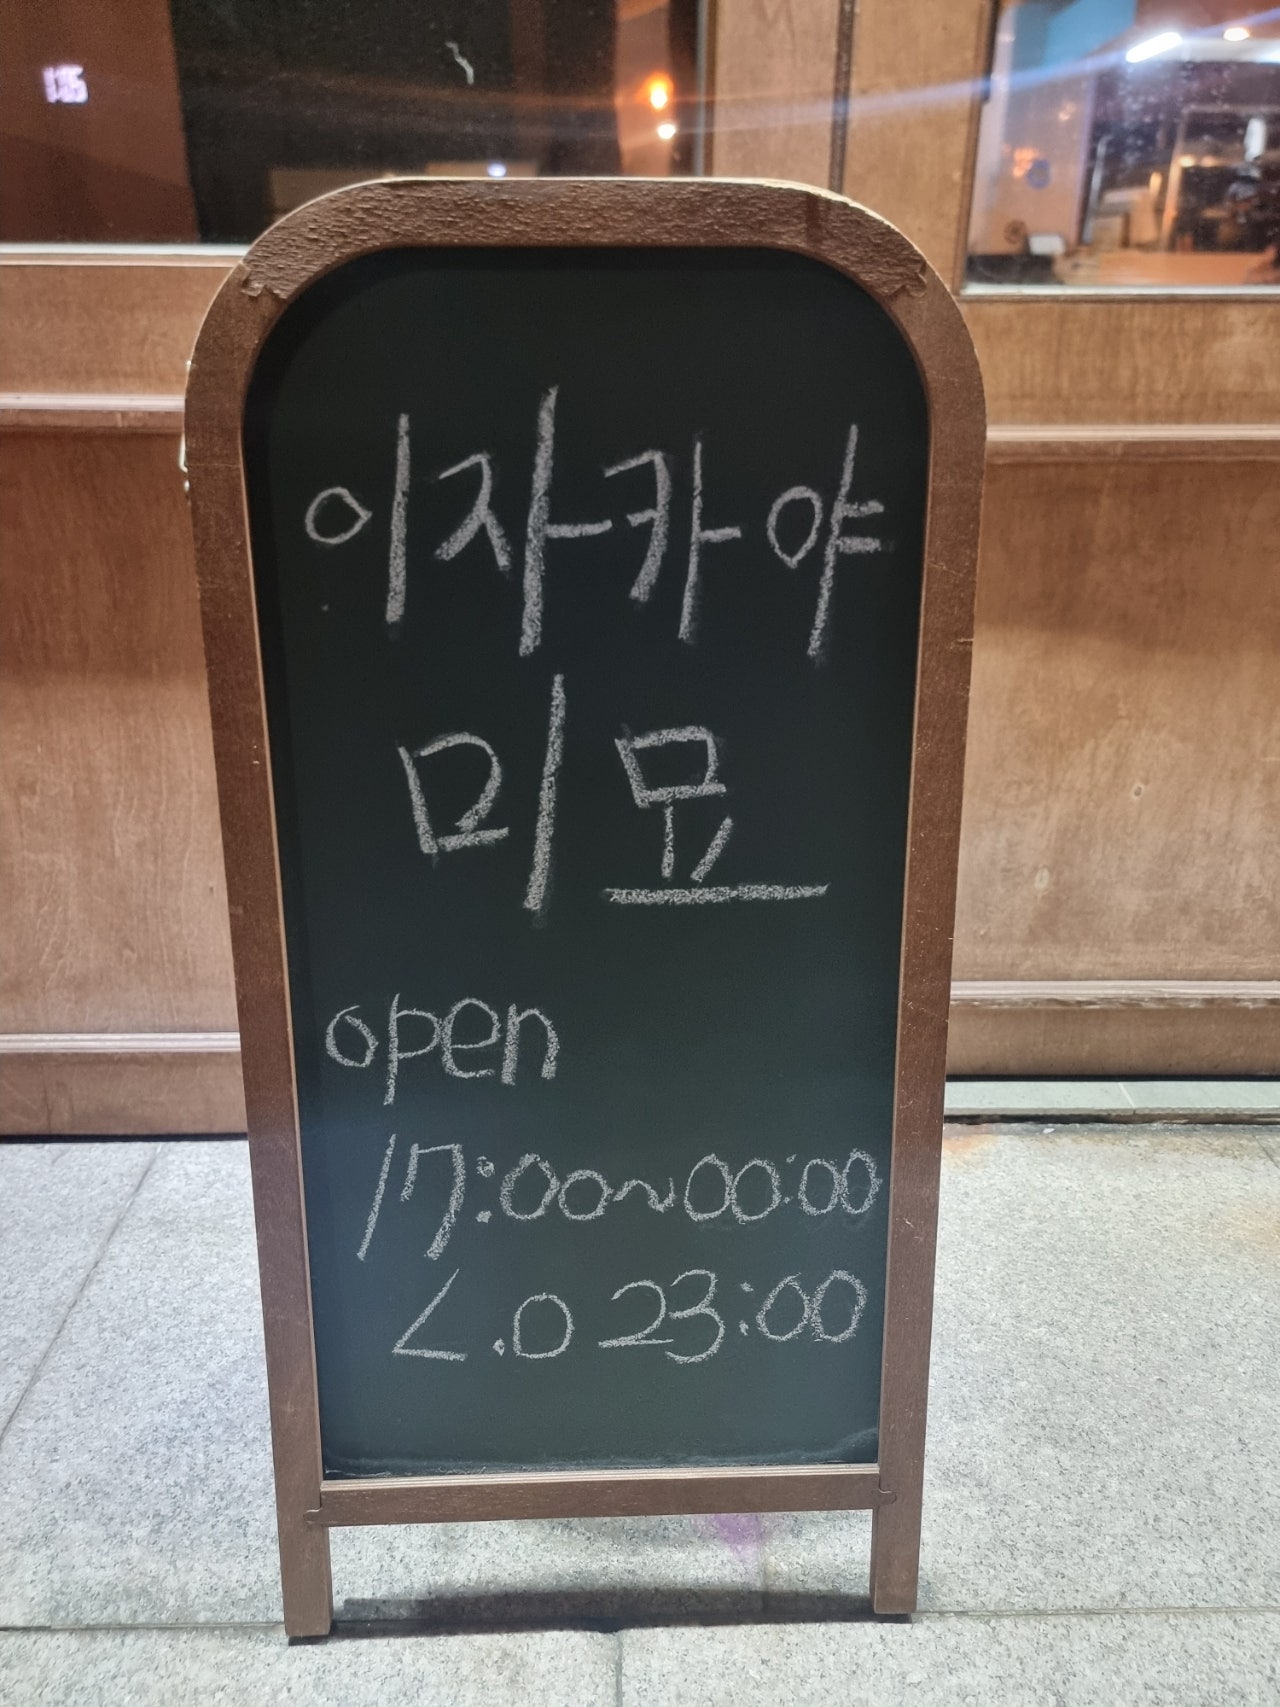 이자카야
미묘
open
17:00~00:00
L.O 23:00